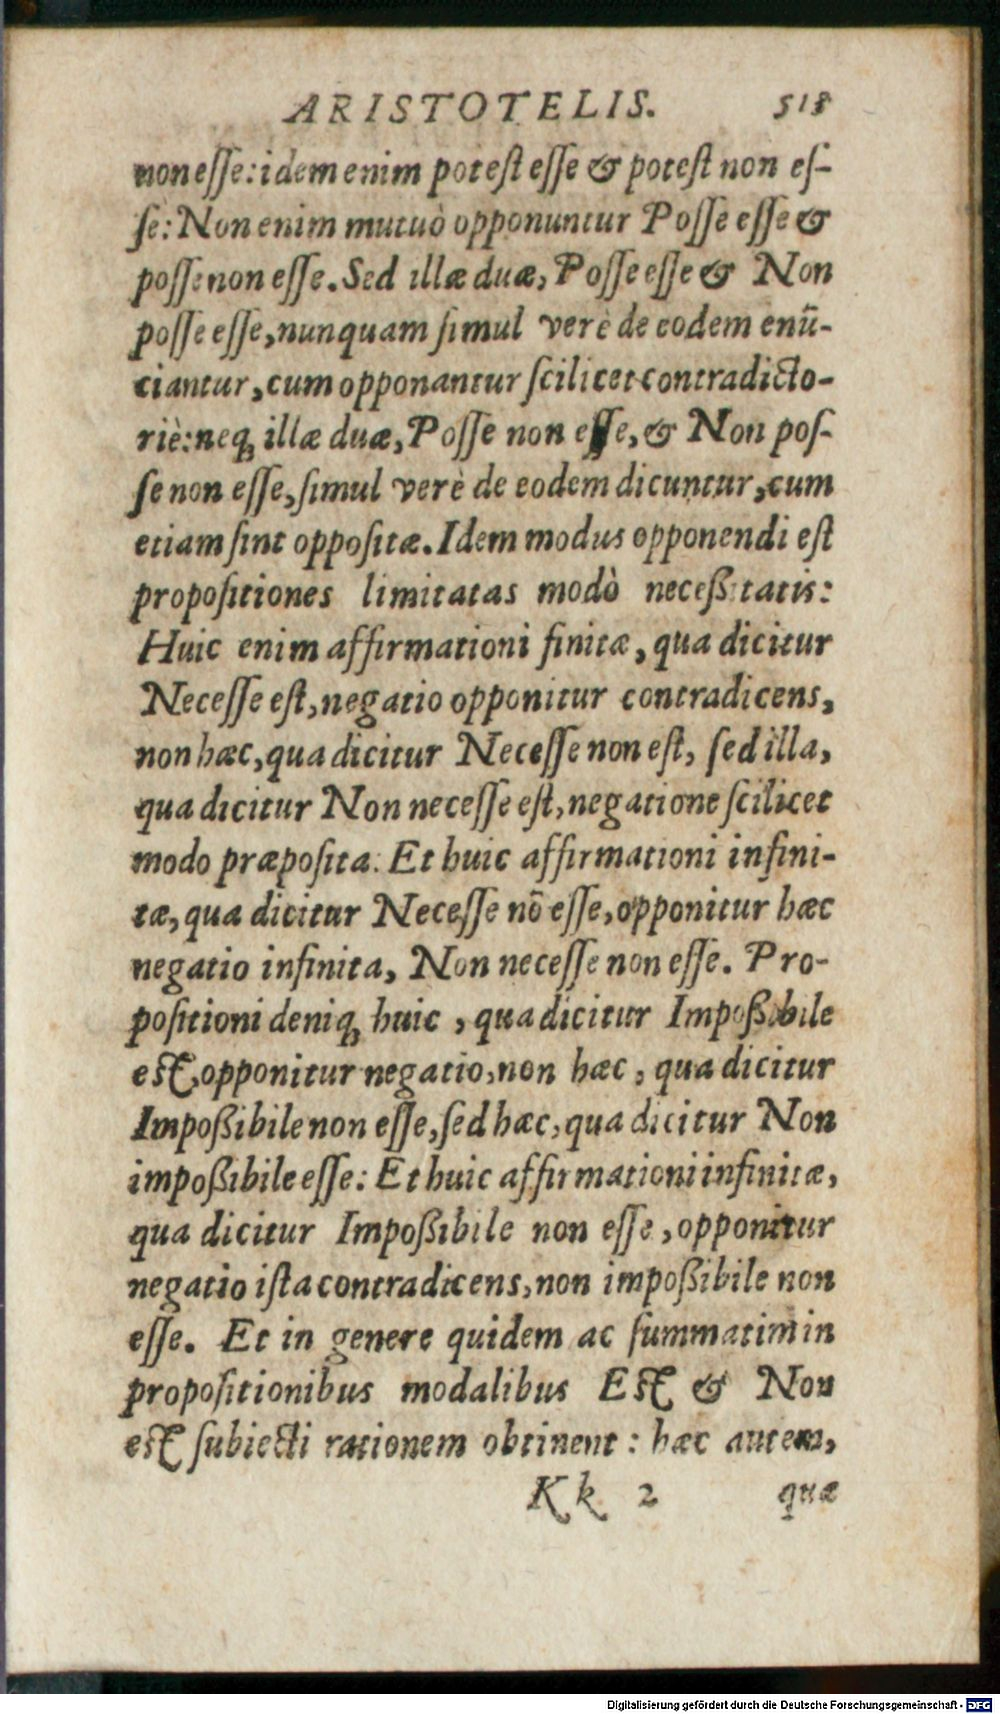 ARISTOTELIS. 518
non esse: idem enim potest esse & potest non es-
se: Non enim mutuò opponuntur Posse esse &
posse non esse. Sed illæ duæ, Posse esse & Non
posse esse, nunquam simul verè de eodem enū-
ciantur, cum opponantur scilicet contradicto-
riè: neq; illæ duæ, Posse non esse, & Non pos-
se non esse, simul verè de eodem dicuntur, cum
etiam sint oppositæ. Idem modus opponendi est
propositiones limitatas modò neceßitatis:
Huic enim affirmationi finitæ, qua dicitur
Necesse est, negatio opponitur contradicens,
non hæc, qua dicitur Necesse non est, sed illa,
qua dicitur Non necesse est, negatione scilicet
modo præposita. Et huic affirmationi infini-
tæ, qua dicitur Necesse nō esse, opponitur hæc
negatio infinita, Non necesse non esse. Pro-
positioni deniq; huic, qua dicitur Impoßibile
est, opponitur negatio, non hæc, qua dicitur
Impoßibile non esse, sed hæc, qua dicitur Non
impoßibile esse: Et huic affirmationi infinitæ,
qua dicitur Impoßibile non esse, opponitur
negatio ista contradicens, non impoßibile non
esse. Et in genere quidem ac summatim in
propositionibus modalibus Est & Non
est subiecti rationem obtinent: hæc autem,
Kk 2 quæ
Digitalisierung gefördert durch die Deutsche Forschungsgemeinschaft - DFG